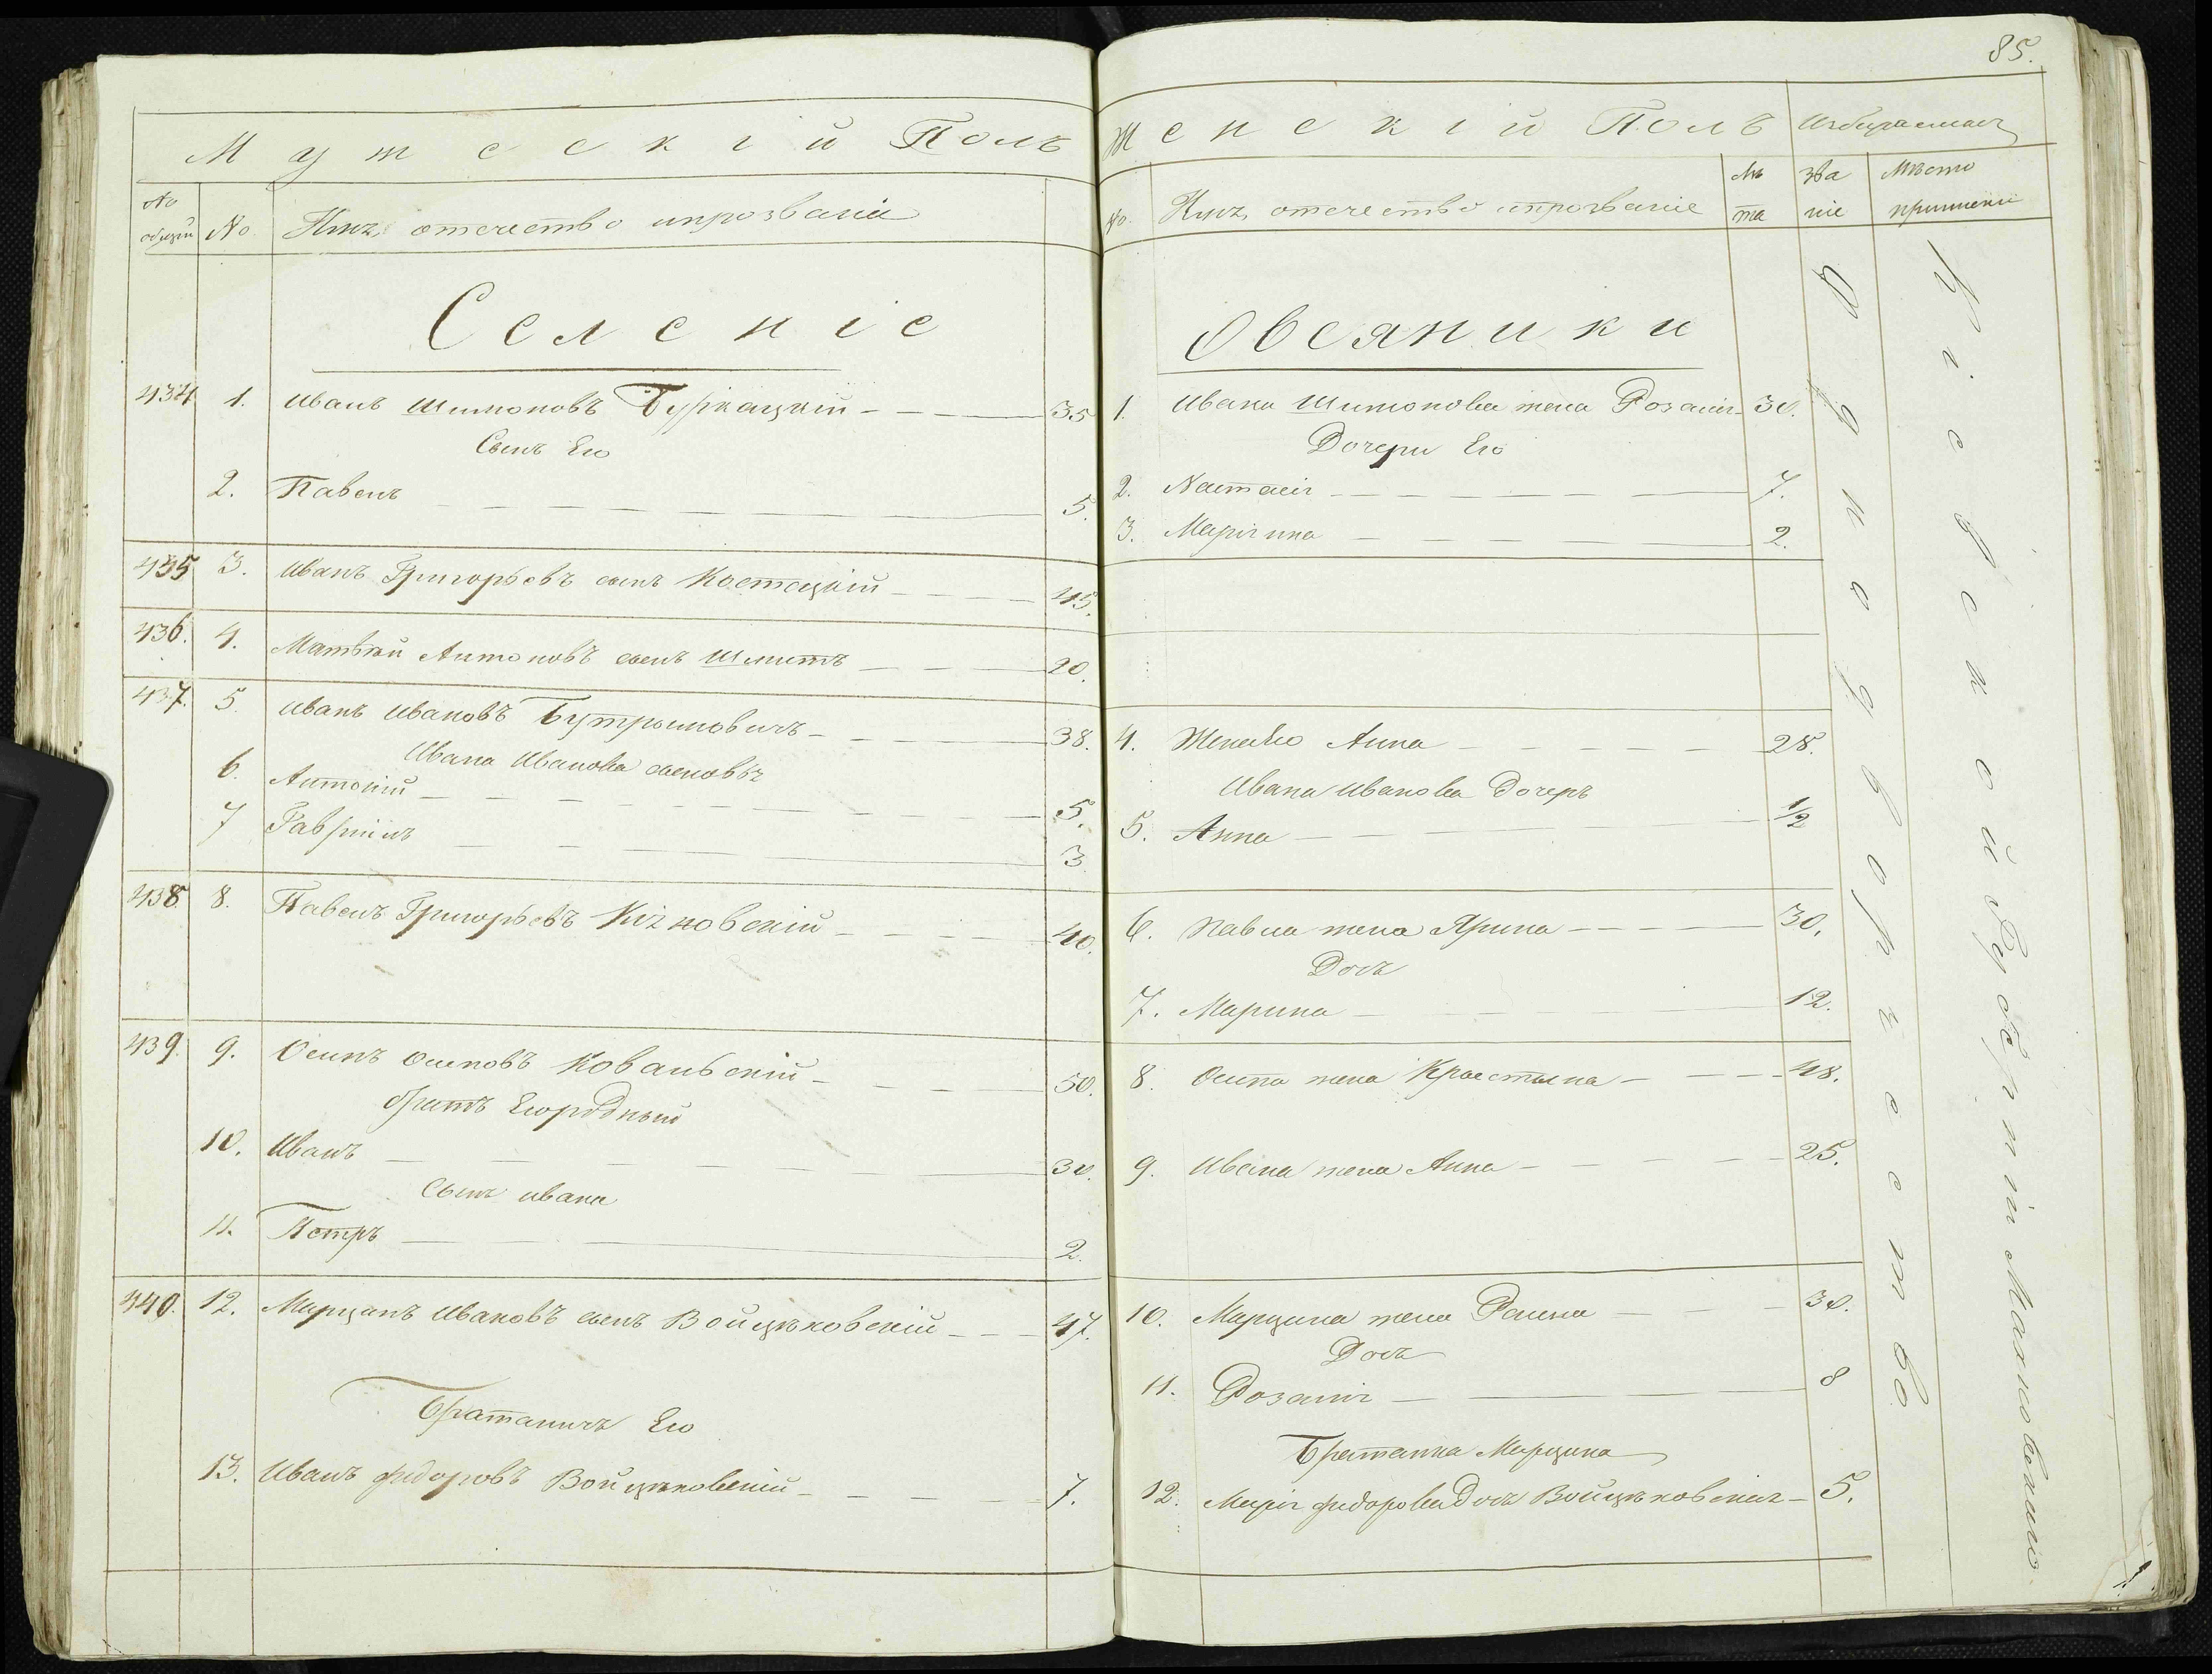 85.
Мужескій Полъ
№ общій
№
Имя, отечество и прозваніе
Селеніе
434 1. Иванъ Шимоновъ Буржацкій 35
Сынъ Его
2. Павелъ 5.
435 3. Иванъ Григорьевъ сынъ Костецкій 45.
436. 4. Матвей Антоновъ сынъ Шмитъ 20.
437. 5. Иванъ Ивановъ Бутрымовичъ 38.
Ивана Иванова сыновья
6. Антоній 5.
7 Гавріилъ 3.
438. 8. Павелъ Григорьевъ 40.
439. 9. Осипъ Осиповъ Ковальскій 50.
братъ Его родный
10. Иванъ 30.
Сынъ Ивана
11. Петръ 2.
440. 12. Марцинъ Ивановъ сынъ Войцѣховскій 47.
Братаничъ Его
13. Иванъ Федоровъ Войцѣховскій 7.
Женскій Полъ
Избираемая
№ Имя, отечество и прозваніе
лѣта
званіе
Мѣсто приписки
Овсяники
1. Ивана Шимонова жена Розалія 30.
Дочери Его
2. Настасія 7.
3. Маріяна 2.
4. Жена Его Анна 28.
Ивана Иванова Дочерь
5. Анна 1/2
6. Павла жена Ярина 30.
Дочь
7. Марина 12.
8. Осипа жена Крыстына 48.
9. Ивана жена Анна 25.
10. Марцина жена 30.
Дочь
11. Розалія 8
Братанка Марцина
12. Марія Федорова Дочь Войцѣховская 5.
Однодворчество
Кіевской Губерніи